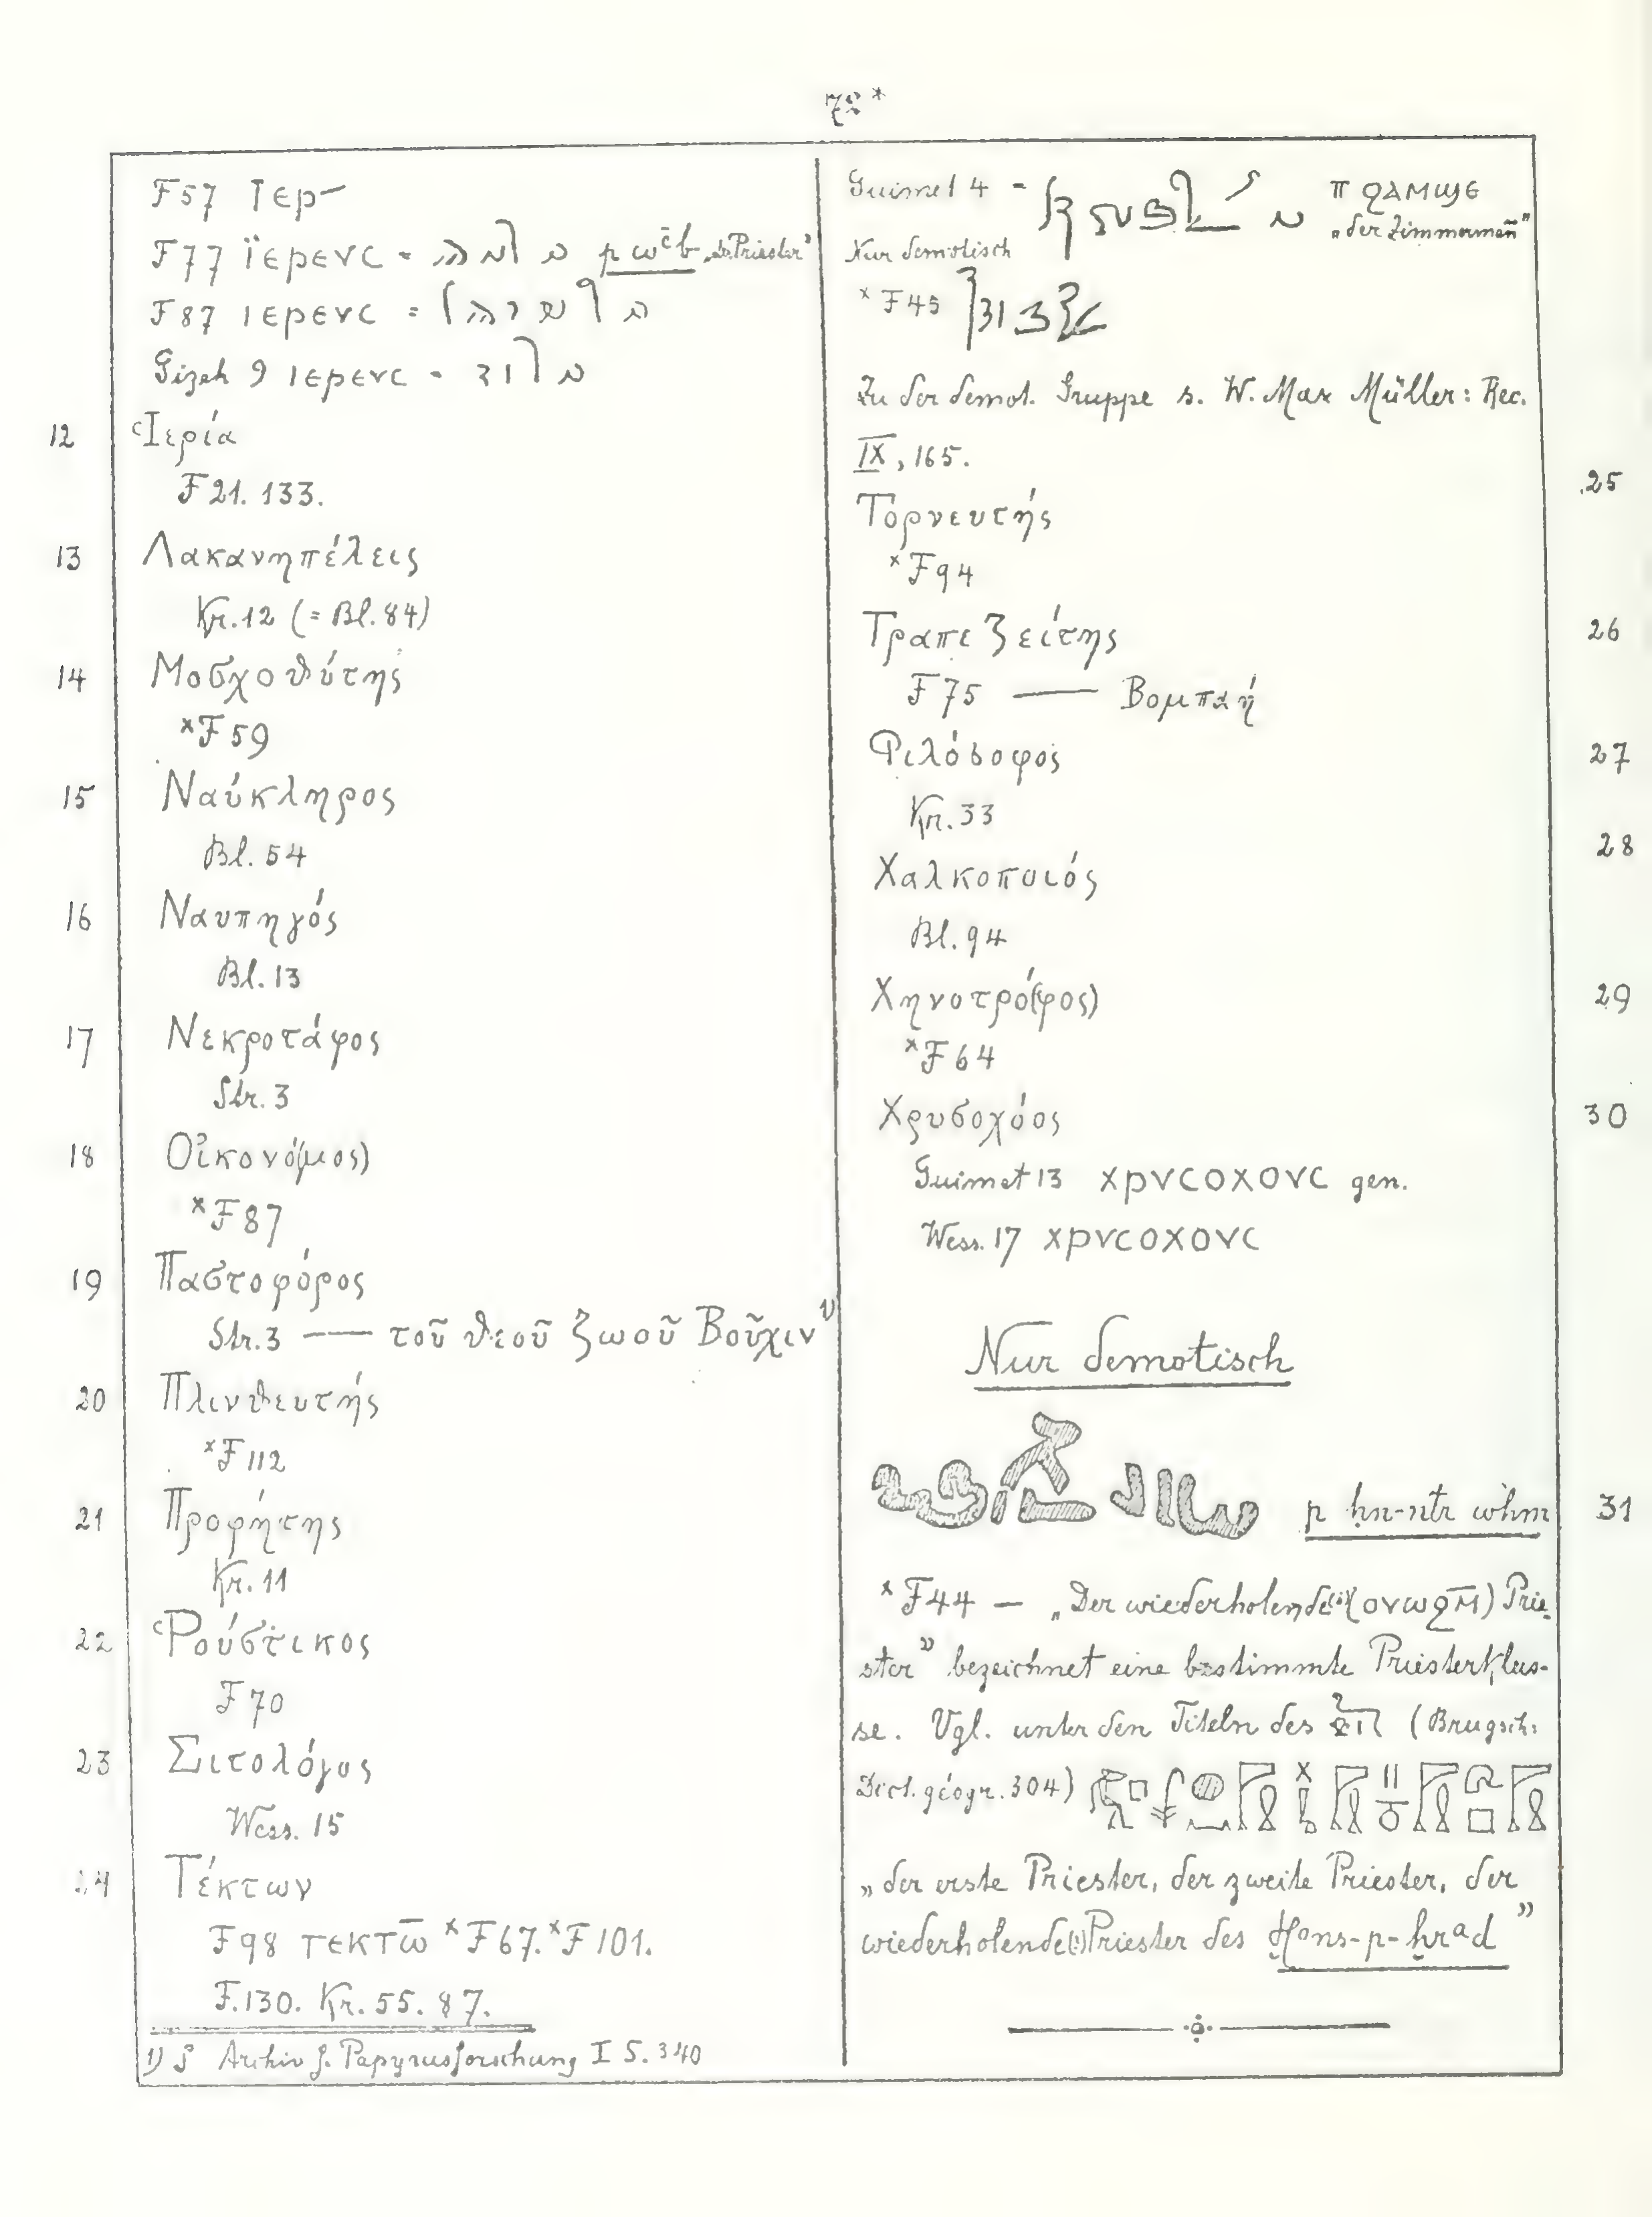 72*
F57 ιερ
F77 ϊερευc = p wʿb „der Priester"
F87 ιερευc =
Gizeh 9 ιερευc =
12 Ἱερία
F21. 133.
13 Λακανηπέλεις
Kr. 12 (= Bl. 84)
14 Μοσχοθύτης
×F59
15 Ναύκληρος
Bl. 54
16 Ναυπηγός
Bl. 13
17 Νεκροτάφος
Str. 3
18 Οἰκονό(μος)
×F87
19 Παστοφόρος
Str. 3 — τοῦ θεοῦ ζωοῦ Βοῦχιν 1)
20 Πλινθευτής
×F112
21 Προφήτης
Kr. 11
22 Ῥούστικος
F70
23 Σιτολόγος
Wess. 15
24 Τέκτων
F98 τεκτω̅ ×F67. ×F101.
F.130. Kr. 55. 87.
1) S Archiv f. Papyrusforschung I S. 340
Guimet 4 = π ϩⲁⲙϣⲉ
„der Zimmermann"
Nur demotisch
×F45
Zu der demot. Gruppe s. W. Max Müller: Rec.
IX, 165.
Τορνευτής 25
×F94
Τραπεζείτης 26
F75 — Βομπαή
Φιλόσοφος 27
Kr. 33
Χαλκοποιός 28
Bl. 94
Χηνοτρό(φος) 29
×F64
Χρυσοχόος 30
Guimet 13 χρυcοχουc gen.
Wess. 17 χρυcοχουc
Nur demotisch
p ḥn-ntr wḥm 31
×F44 — „Der wiederholende(!) (ⲟⲩⲱϩⲙ̅) Prie-
ster" bezeichnet eine bestimmte Priesterklas-
se. Vgl. unter den Titeln des (Brugsch:
Dict. géogr. 304)
„der erste Priester, der zweite Priester, der
wiederholende(!) Priester des Ḫons-p-ḥrad"